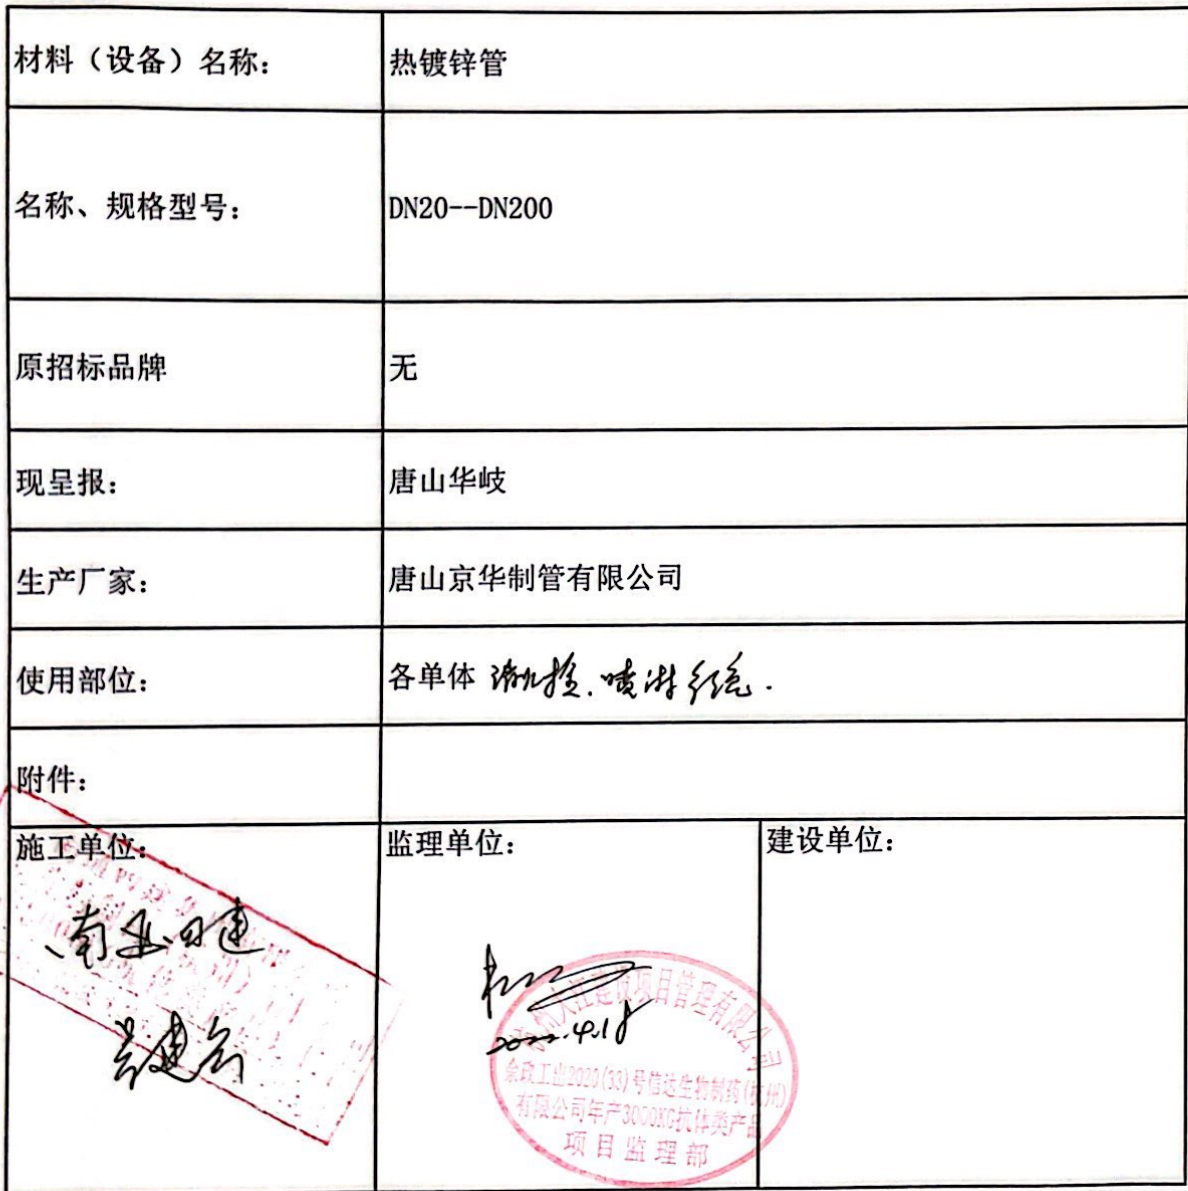 材料（设备）名称：
热镀锌管
名称、规格型号：
DN20--DN200
原招标品牌
无
现呈报：
唐山华岐
生产厂家：
唐山京华制管有限公司
使用部位：
各单体 消火栓.喷淋系统.
附件：
施工单位：
监理单位：
建设单位：
2022.4.18
建设项目管理有限公司
余政工出2020(33)号信达生物制药(杭州)
有限公司年产3000KG抗体类产品
项目监理部